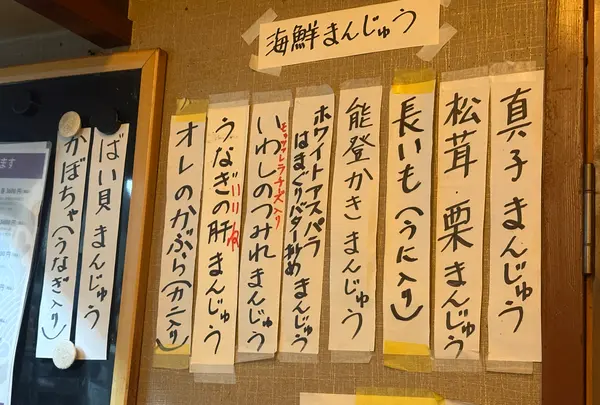 海鮮まんじゅう
真子まんじゅう
松茸 栗まんじゅう
長いも(うに入り)
能登かきまんじゅう
ホワイトアスパラ
はまぐりバター炒めまんじゅう
モッツァレラチーズ入り
いわしのつみれまんじゅう
うなぎの肝まんじゅう
オレのかぶら(カニ入り)
ばい貝まんじゅう
かぼちゃ(うなぎ入り)